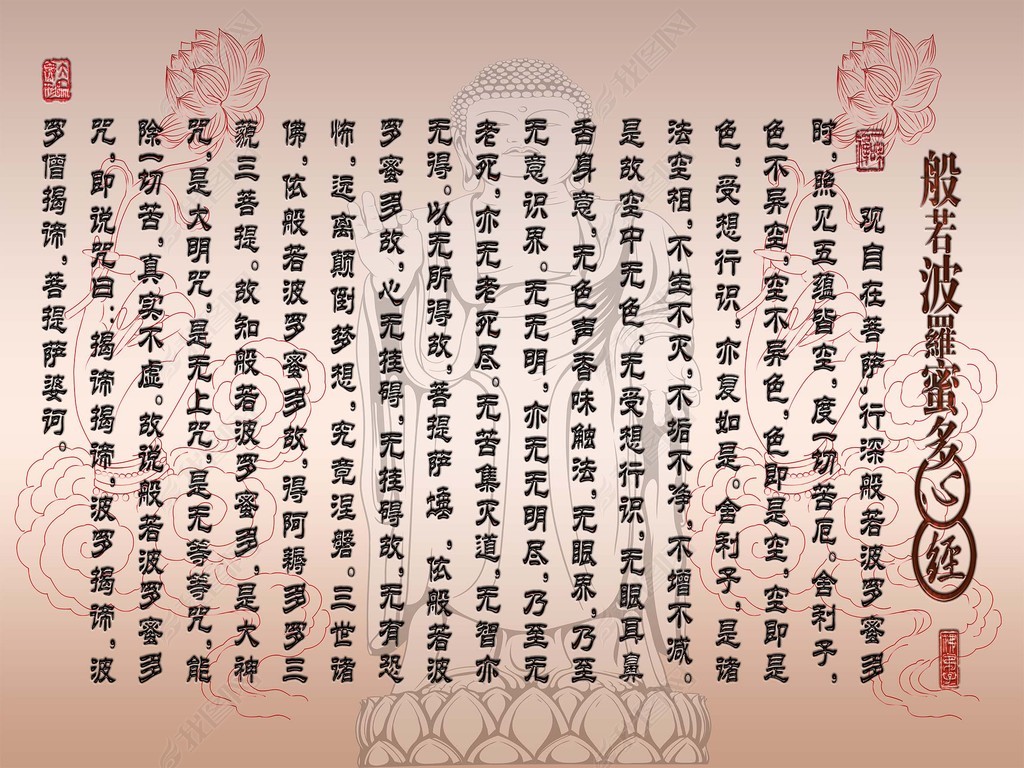 般若波羅蜜多心經
观自在菩萨,行深般若波罗蜜多
时,照见五蕴皆空,度一切苦厄。舍利子,
色不异空,空不异色,色即是空,空即是
色,受想行识,亦复如是。舍利子,是诸
法空相,不生不灭,不垢不净,不增不减。
是故空中无色,无受想行识,无眼耳鼻
舌身意,无色声香味触法,无眼界,乃至
无意识界。无无明,亦无无明尽,乃至无
老死,亦无老死尽。无苦集灭道,无智亦
无得。以无所得故,菩提萨埵,依般若波
罗蜜多故,心无挂碍,无挂碍故,无有恐
怖,远离颠倒梦想,究竟涅磐。三世诸
佛,依般若波罗蜜多故,得阿耨多罗三
藐三菩提。故知般若波罗蜜多,是大神
咒,是大明咒,是无上咒,是无等等咒,能
除一切苦,真实不虚。故说般若波罗蜜多
咒,即说咒曰:揭谛揭谛,波罗揭谛,波
罗僧揭谛,菩提萨婆诃。